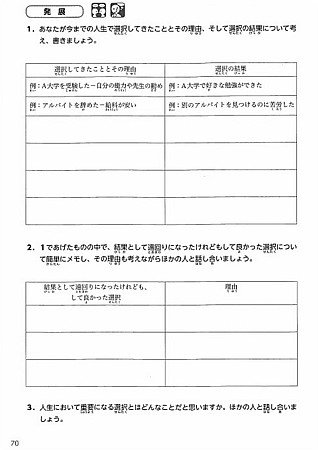 発展
1．あなたが今までの人生で選択してきたこととその理由、そして選択の結果について考
え、書きましょう。
選択してきたこととその理由 選択の結果
例：A大学を受験した－自分の能力や先生の勧め 例：A大学で好きな勉強ができた
例：アルバイトを辞めた－給料が安い 例：別のアルバイトを見つけるのに苦労した
2．1であげたものの中で、結果として遠回りになったけれども良かった選択につい
て簡単にメモし、その理由も考えながらほかの人と話し合いましょう。
結果として遠回りになったけれども、 理由
して良かった選択
3．人生において重要になる選択とはどんなことだと思いますか。ほかの人と話し合いま
しょう。
70